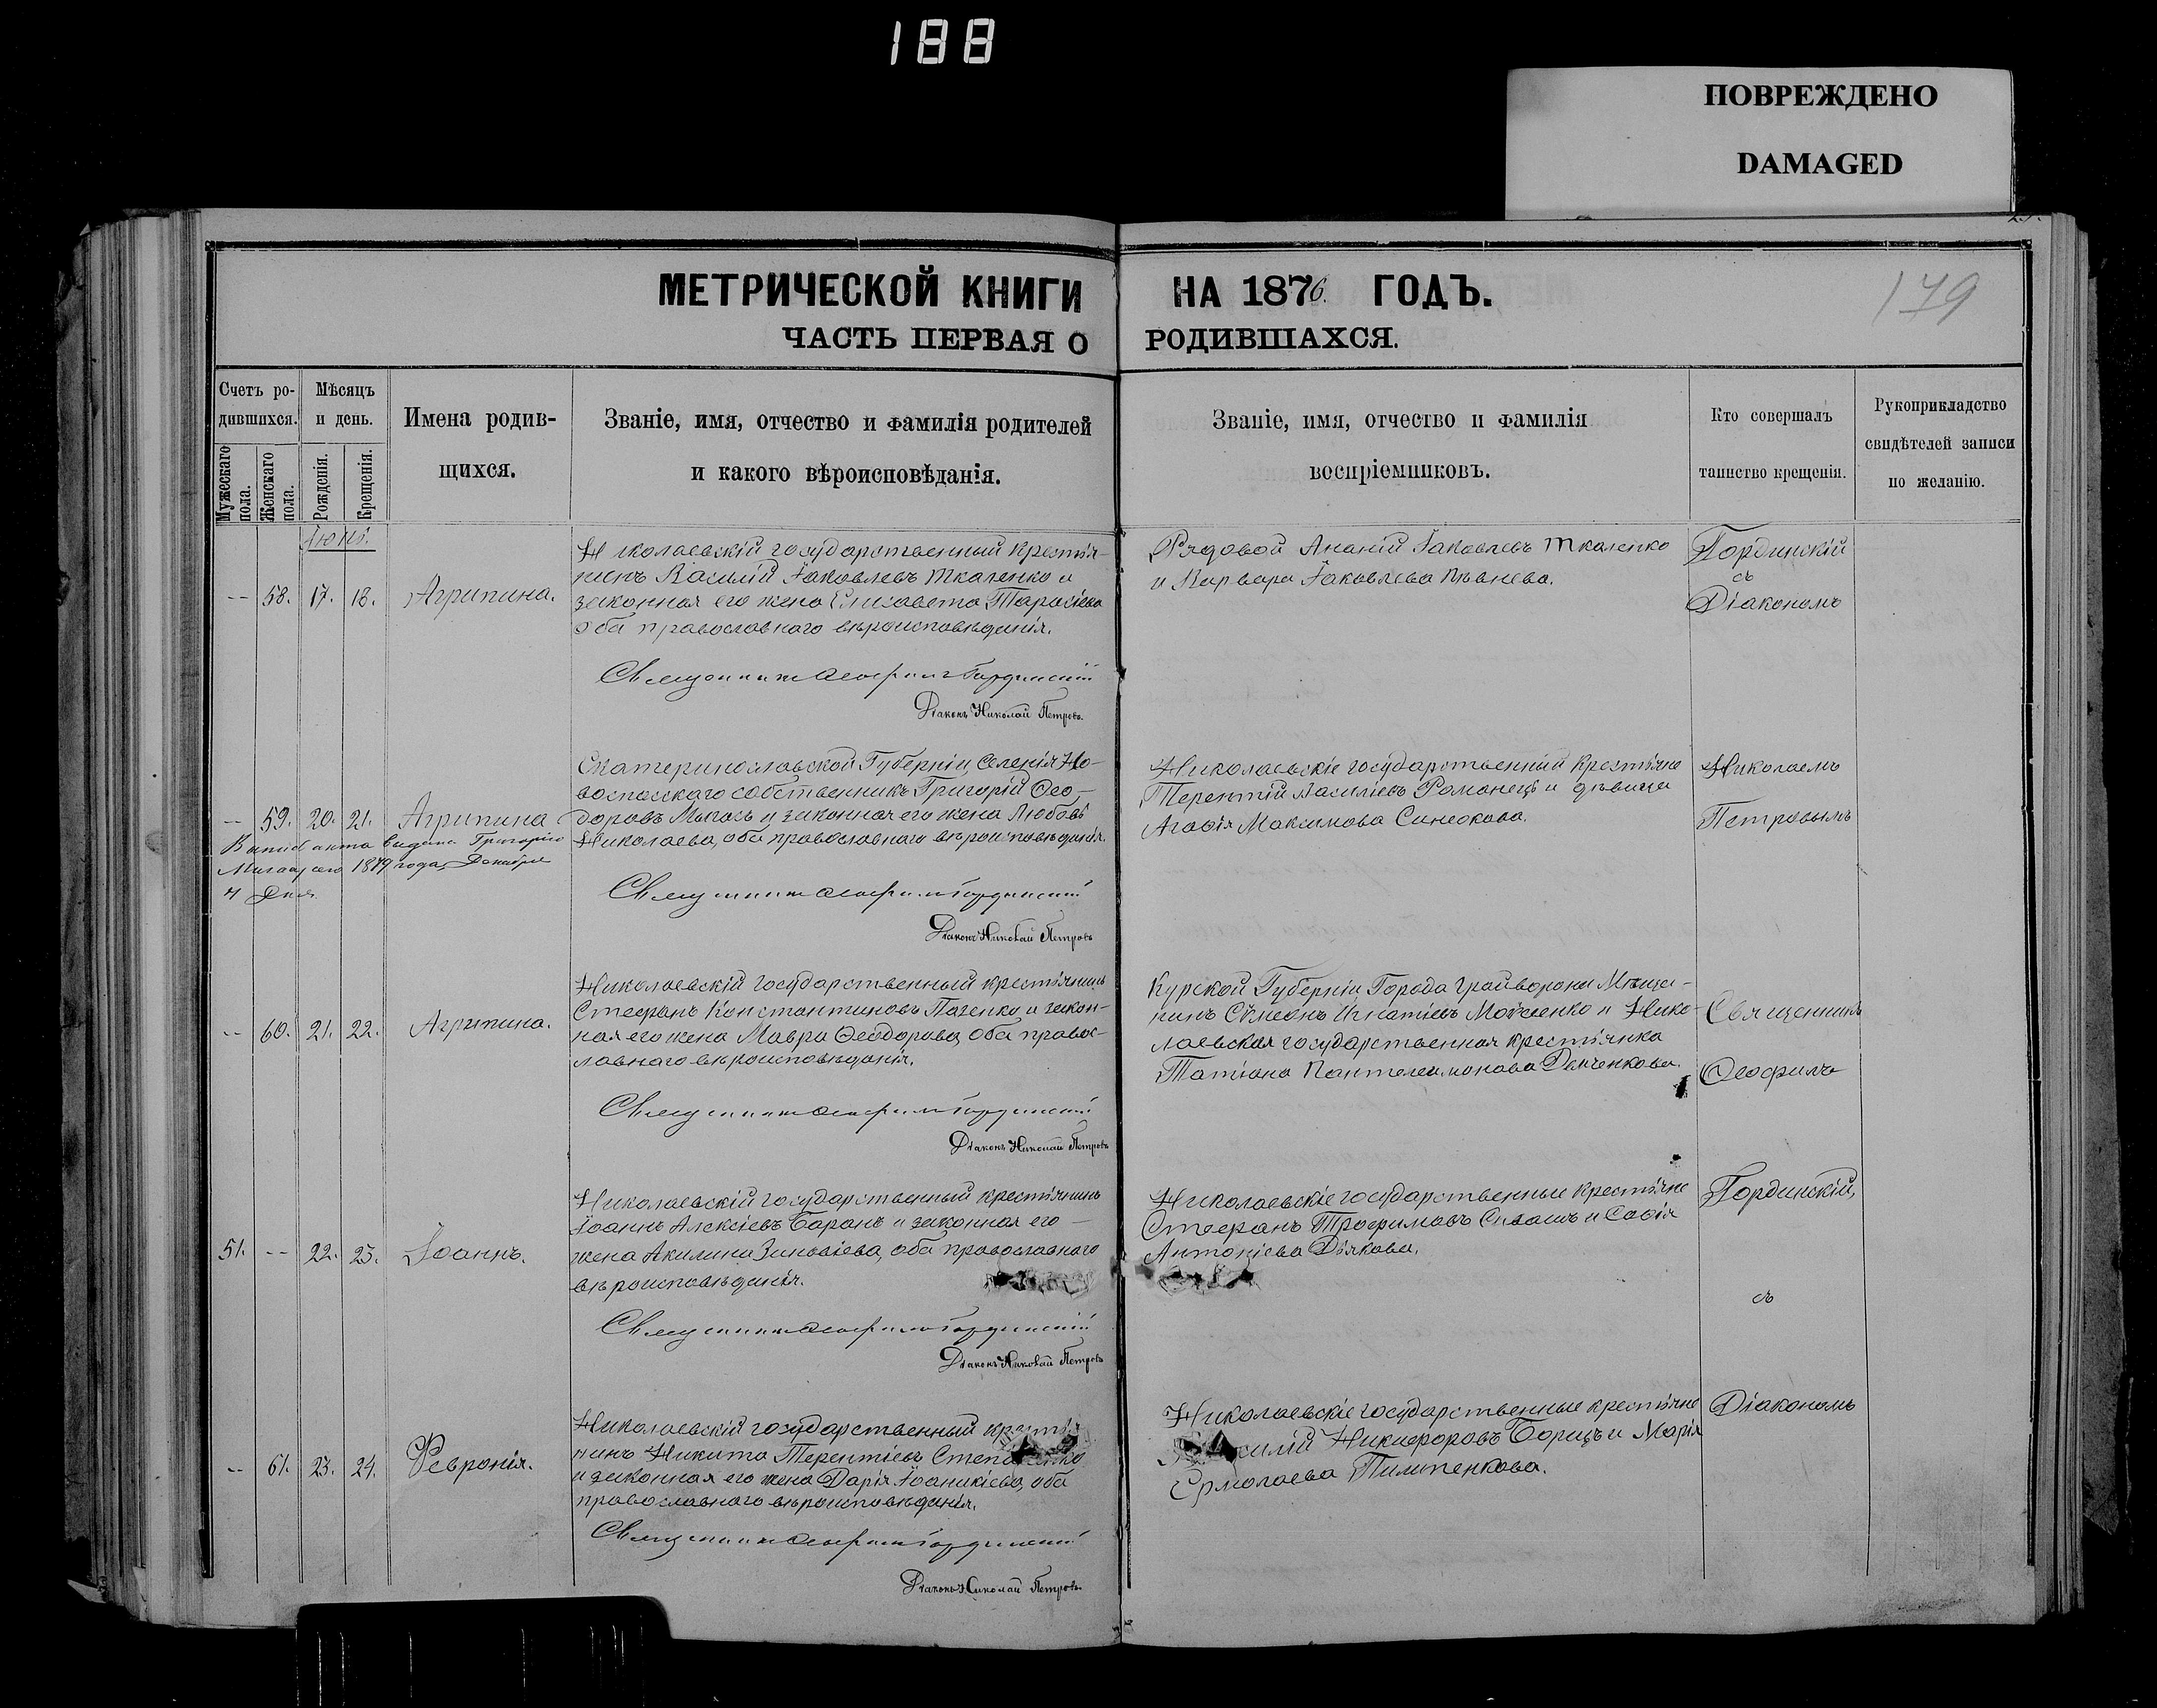 188
ПОВРЕЖДЕНО
DAMAGED
МЕТРИЧЕСКОЙ КНИГИ НА 1876. ГОДЪ.
179
ЧАСТЬ ПЕРВАЯ О РОДИВШАХСЯ.
Счетъ ро-
дившихся.
Мужескаго пола.
Женскаго пола.
Мѣсяцъ
и день.
Рожденія.
Крещенія.
Имена родив-
щихся.
Званіе, имя, отчество и фамилія родителей
и какого вѣроисповѣданія.
Званіе, имя, отчество и фамилія
воспріемниковъ.
Кто совершалъ
таинство крещенія.
Рукоприкладство
свидѣтелей записи
по желанію.
Іюнь.
-- 58. 17. 18. Агрипина.
Николаевскій государственный крестья-
нинъ Василій Іаковлевъ Ткаченко и
законная его жена Елисавета Тарасіева
оба православнаго вѣроисповѣданія.
Священникъ Ѳеофилъ Гординскій
Діаконъ Николай Петровъ.
Рядовой Ананій Іаковлевъ Ткаченко
и Варвара Іаковлева Пѣвнева.
Гординскій
съ
Діакономъ
-- 59. 20. 21. Агрипина
акта выдана Григорію
1879 года, Декабря
4 дня
Екатеринославской Губерніи, Селенія Но-
воспасскаго собственникъ Григорій Ѳео-
доровъ и законная его жена Любовь
Николаева, оба православнаго вѣроисповѣданія.
Священникъ Ѳеофилъ Гординскій
Діаконъ Николай Петровъ
Николаевскіе государственный крестьяне
Терентій Василіевъ Романецъ и дѣвица
Агафія Максимова Синеокова.
Николаемъ
Петровымъ
-- 60. 21. 22. Агрипина.
Николаевскій государственный крестьянинъ
Стефанъ Константиновъ Паченко и закон-
ная его жена Мавра Ѳеодорова, оба правос-
лавнаго вѣроисповѣданія.
Священникъ Ѳеофилъ Гординскій
Діаконъ Николай Петровъ
Курской Губерніи Города Грайворона Мѣща-
нинъ Симеонъ Игнатіевъ Мойсеенко и Нико-
лаевская государственная крестьянка
Татіана Пантелеимонова Демченкова.
Священникъ
Ѳеофилъ
51. -- 22. 23. Іоаннъ.
Николаевскій государственный крестьянинъ
Іоаннъ Алексіевъ Баранъ и законная его
жена Акилина Зиновіева, оба православнаго
вѣроисповѣданія.
Священникъ Ѳеофилъ Гординскій
Діаконъ Николай Петровъ
Николаевскіе государственные крестьяне
Стефанъ Трофимовъ Сивашъ и Софія
Антоніева Дьякова.
Гординскій,
съ
-- 61. 23. 24. Февронія.
Николаевскій государственный крестья-
нинъ Никита Терентіевъ
и законная его жена Дарія Іоаникіева, оба
православнаго вѣроисповѣданія.
Священникъ Ѳеофилъ Гординскій
Діаконъ Николай Петровъ
Николаевскіе государственные крестьяне
Василій Никифоровъ Борецъ и Марія
Ермолаева Пилипенкова.
Діакономъ